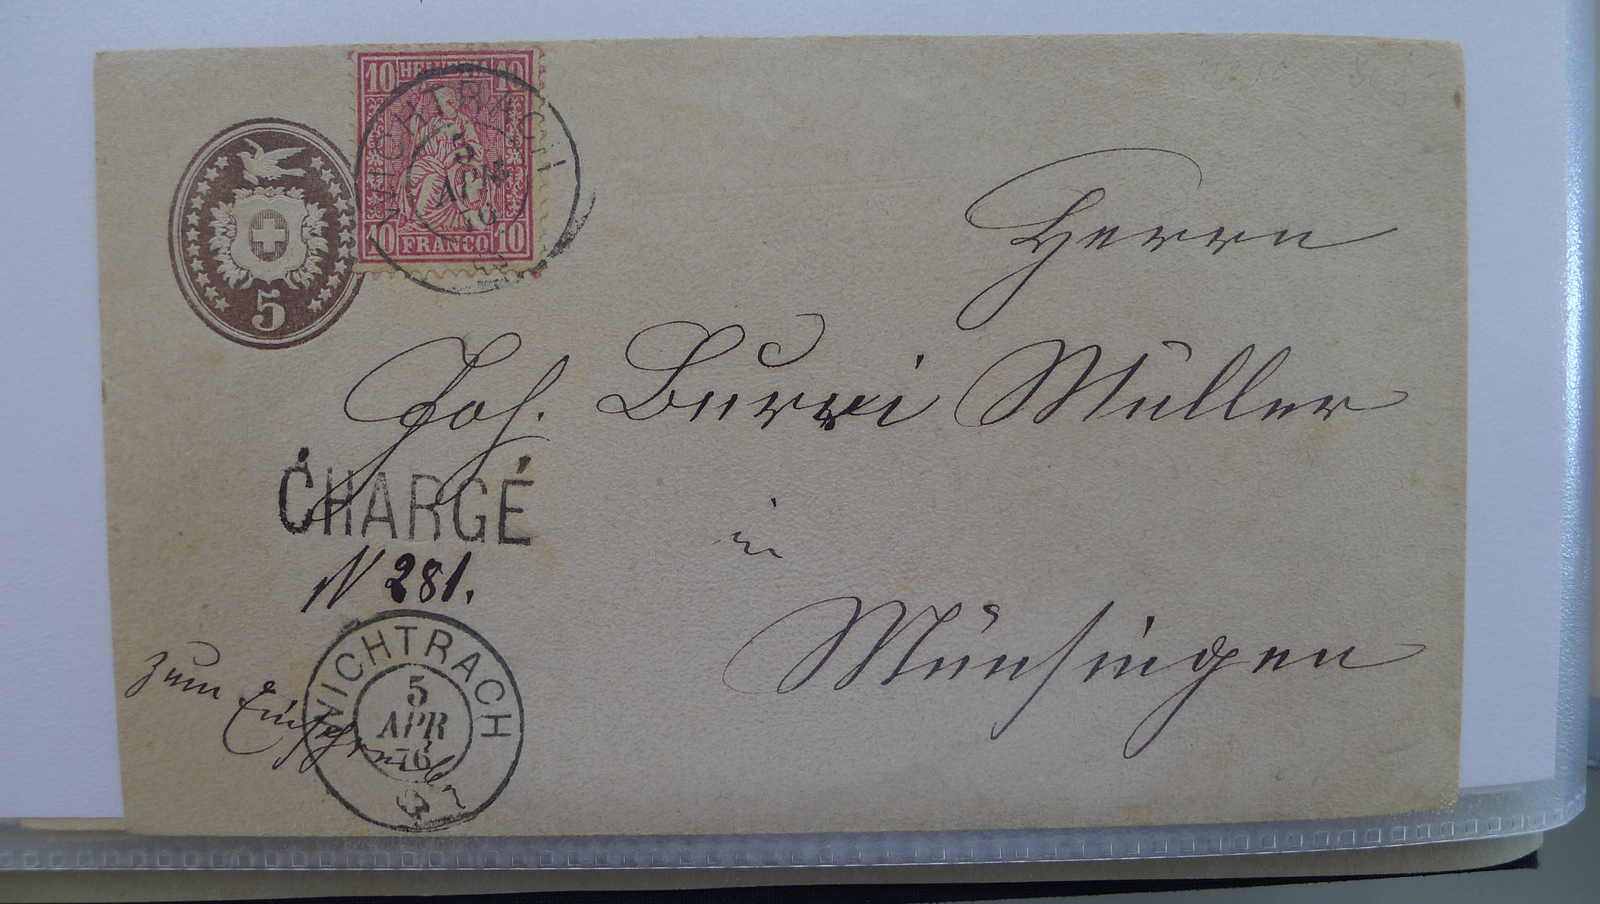 10 HELVETIA 10
10 FRANCO 10
WICHTRACH
5
APR
76
5
Herrn
Joh. Burri Müller
CHARGÉ
in
N 281.
Münsingen
zum Einschreiben
WICHTRACH
5
APR
76